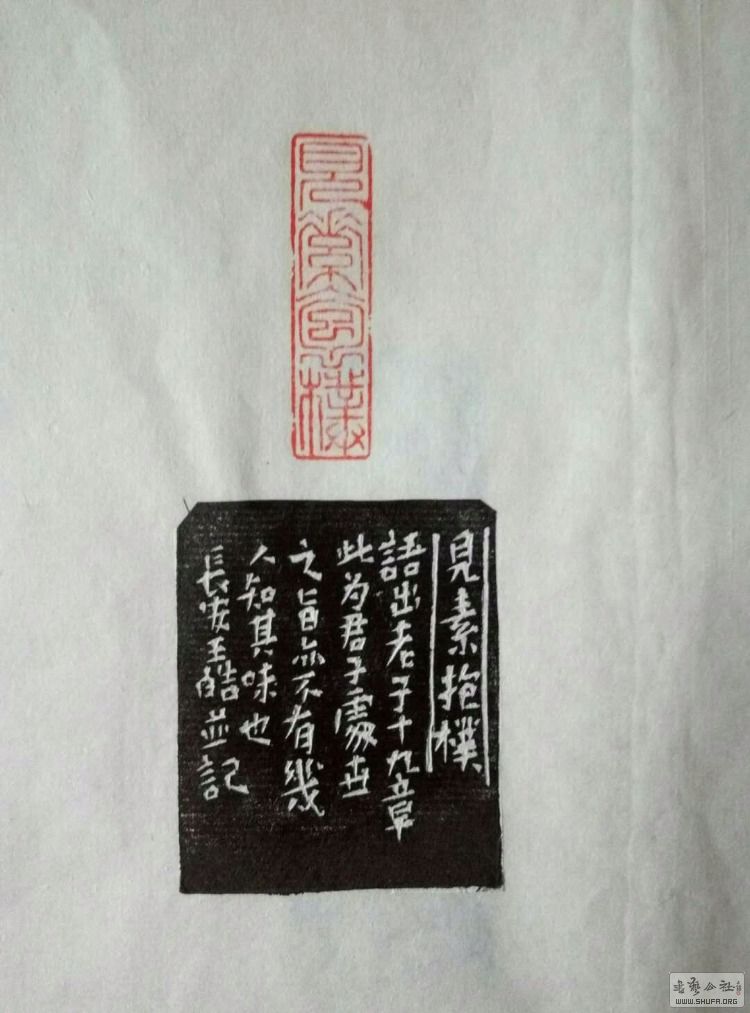 見素抱樸
見素抱樸
語出老子十九章
此为君子處世
之旨亦不有幾
人知其味也
長安王皓並記
书艺公社
WWW.SHUFA.ORG